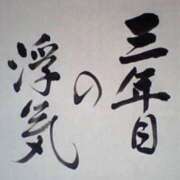 三年目
の
浮気